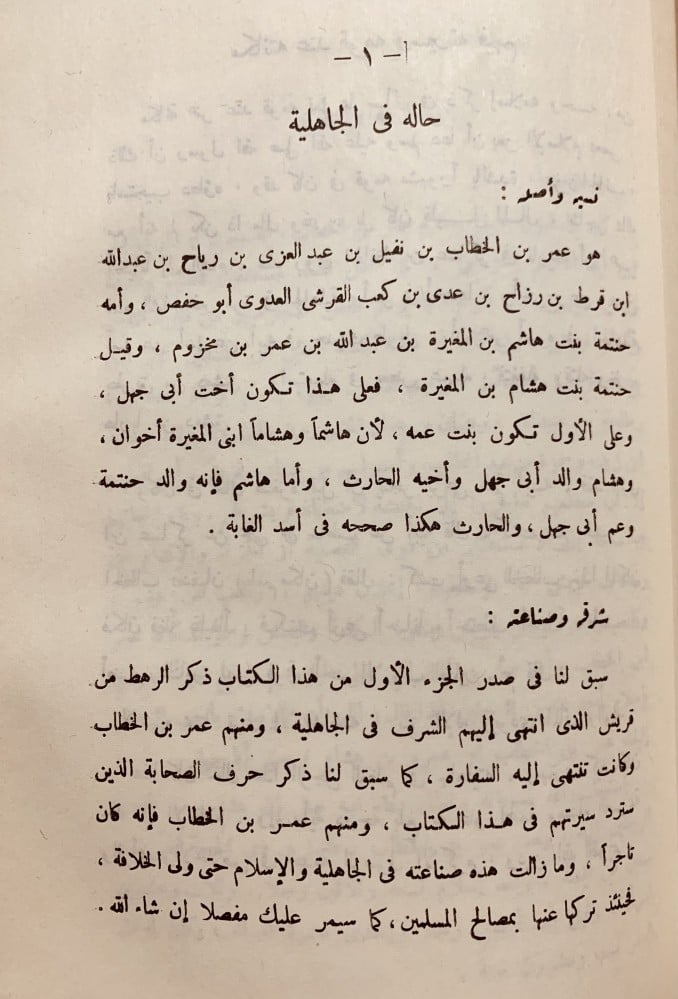 - ١ -
حاله فى الجاهلية
نسبه وأصله :
هو عمر بن الخطاب بن نفيل بن عبد العزى بن رياح بن عبدالله
ابن قرط بن رزاح بن عدى بن كعب القرشى العدوى أبو حفص ، وأمه
حنتمة بنت هاشم بن المغيرة بن عبد الله بن عمر بن مخزوم ، وقيل
حنتمة بنت هشام بن المغيرة ، فعلى هذا تكون أخت أبى جهل ،
وعلى الأول تكون بنت عمه ، لأن هاشماً وهشاماً ابنى المغيرة أخوان ،
وهشام والد أبى جهل وأخيه الحارث ، وأما هاشم فإنه والد حنتمة
وعم أبى جهل ، والحارث هكذا صححه فى أسد الغابة .
شرفه وصناعته :
سبق لنا فى صدر الجزء الأول من هذا الكتاب ذكر الرهط من
قريش الذى انتهى إليهم الشرف فى الجاهلية ، ومنهم عمر بن الخطاب
وكانت تنتهى إليه السفارة ، كما سبق لنا ذكر حرف الصحابة الذين
سترد سيرتهم فى هذا الكتاب ، ومنهم عمر بن الخطاب فإنه كان
تاجراً ، وما زالت هذه صناعته فى الجاهلية والإسلام حتى ولى الخلافة ،
فحينئذ تركها عنها بمصالح المسلمين ، كما سيمر عليك مفصلا إن شاء الله .